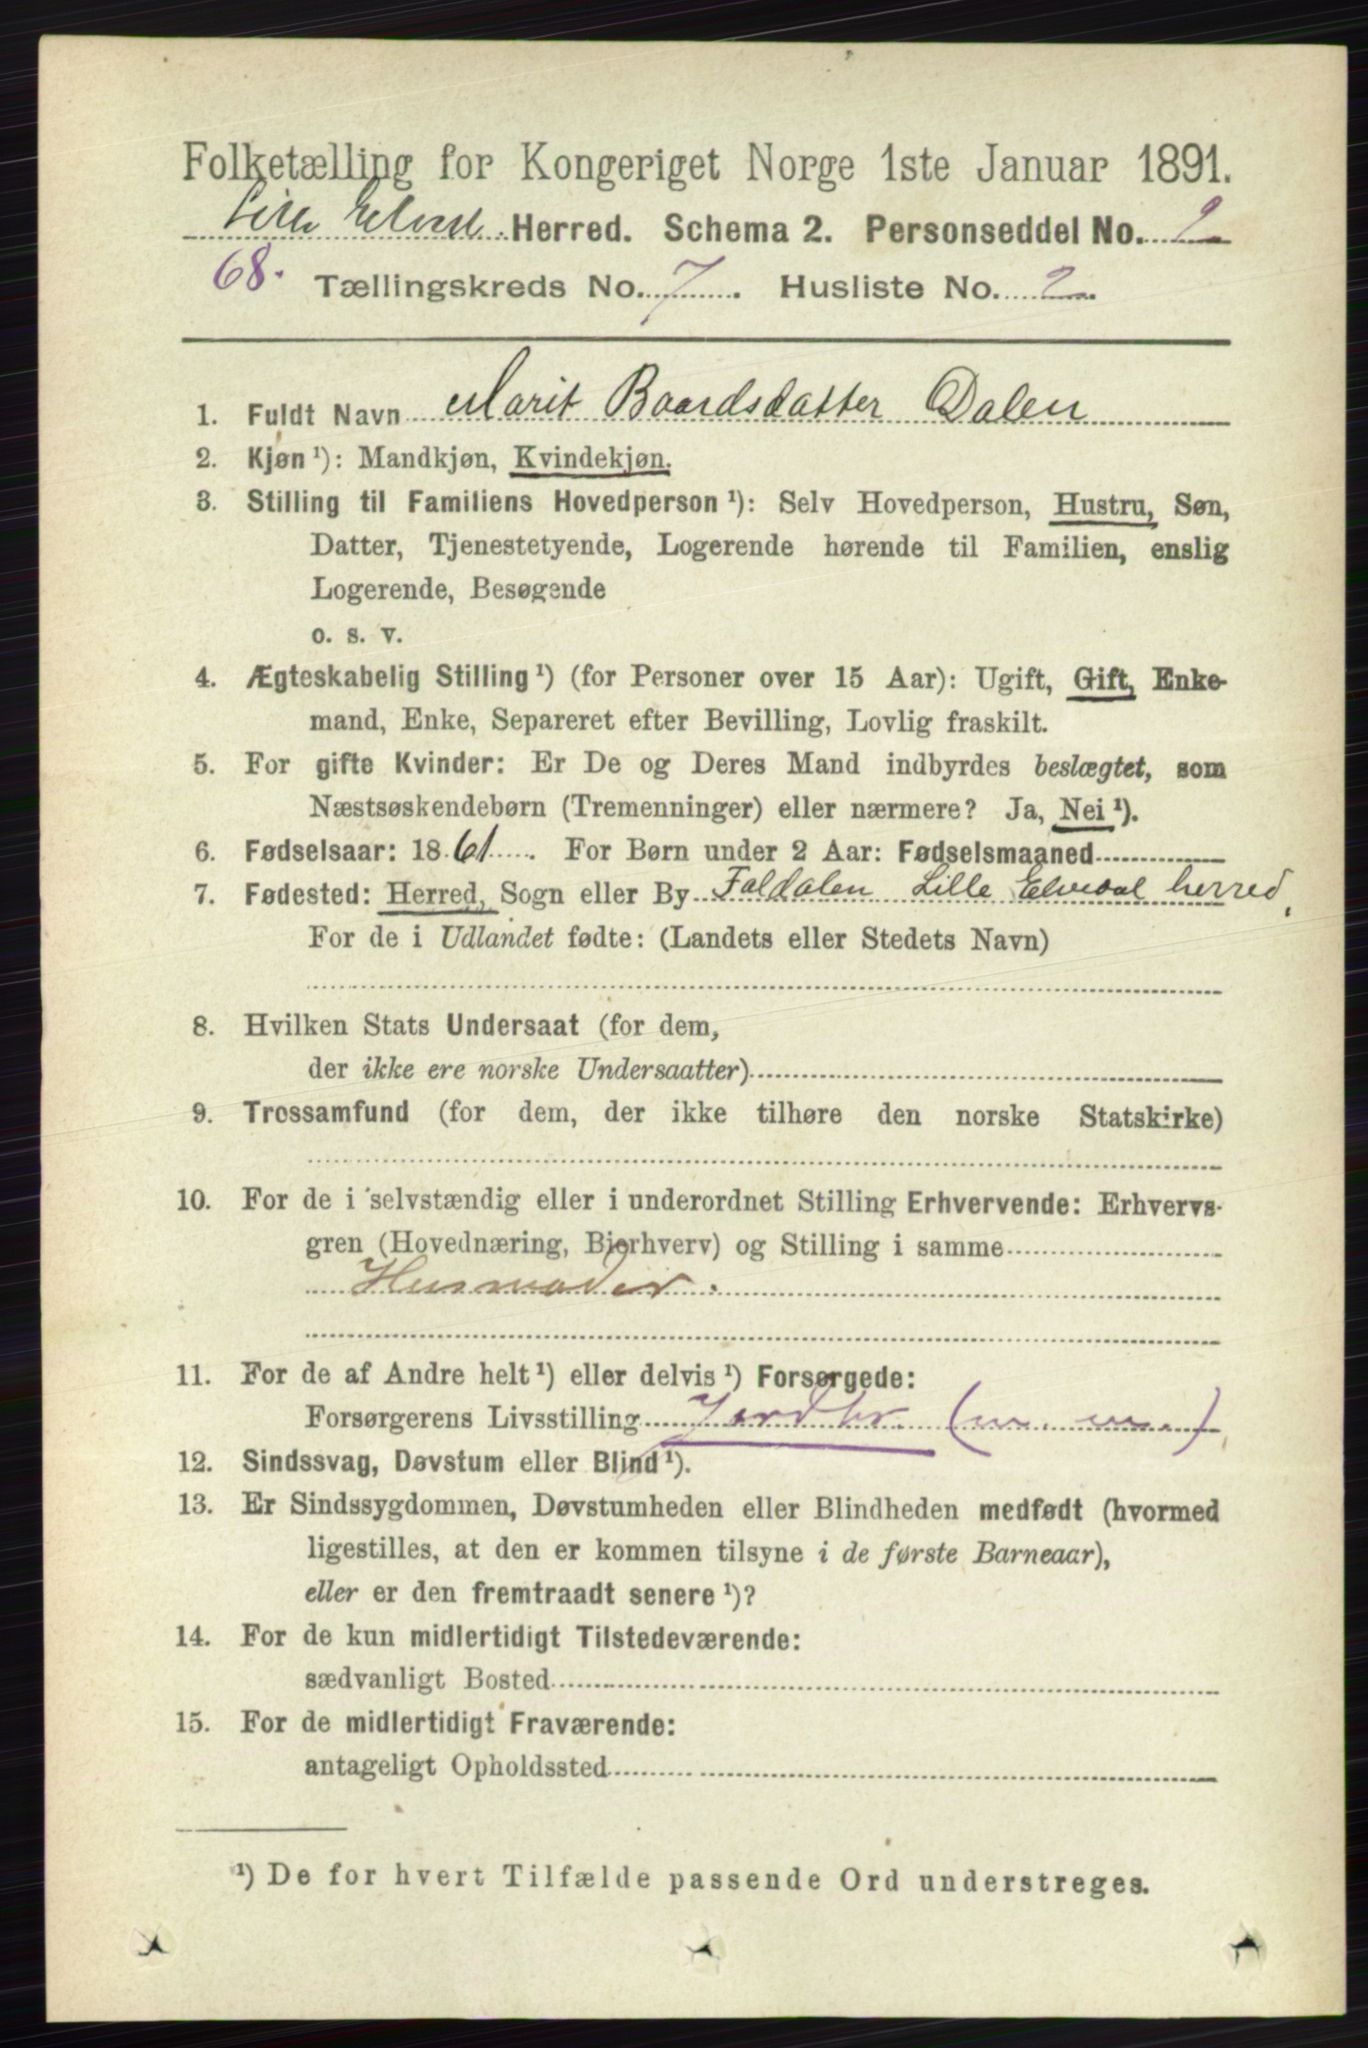 Folketælling for Kongeriget Norge 1ste Januar 1891.
Lille Elvedal Herred. Schema 2. Personseddel No. 2
68. Tællingskreds No. 7. Husliste No. 2.
1. Fuldt Navn Marit Baardsdatter Dalen
2. Kjøn ¹): Mandkjøn, Kvindekjøn.
3. Stilling til Familiens Hovedperson ¹): Selv Hovedperson, Hustru, Søn,
Datter, Tjenestetyende, Logerende hørende til Familien, enslig
Logerende, Besøgende
o. s. v.
4. Ægteskabelig Stilling ¹) (for Personer over 15 Aar): Ugift, Gift, Enke-
mand, Enke, Separeret efter Bevilling, Lovlig fraskilt.
5. For gifte Kvinder: Er De og Deres Mand indbyrdes beslægtet, som
Næstsøskendebørn (Tremenninger) eller nærmere? Ja, Nei ¹).
6. Fødselsaar: 1861. For Børn under 2 Aar: Fødselsmaaned
7. Fødested: Herred, Sogn eller By Foldalen Lille Elvedal herred,
For de i Udlandet fødte: (Landets eller Stedets Navn)
8. Hvilken Stats Undersaat (for dem,
der ikke ere norske Undersaatter)
9. Trossamfund (for dem, der ikke tilhøre den norske Statskirke)
10. For de i selvstændig eller i underordnet Stilling Erhvervende: Erhvervs-
gren (Hovednæring, Bierhverv) og Stilling i samme
Husmoder.
11. For de af Andre helt ¹) eller delvis ¹) Forsørgede:
Forsørgerens Livsstilling Jordbr. (m. m.)
12. Sindssvag, Døvstum eller Blind ¹).
13. Er Sindssygdommen, Døvstumheden eller Blindheden medfødt (hvormed
ligestilles, at den er kommen tilsyne i de første Barneaar),
eller er den fremtraadt senere ¹)?
14. For de kun midlertidigt Tilstedeværende:
sædvanligt Bosted
15. For de midlertidigt Fraværende:
antageligt Opholdssted
¹) De for hvert Tilfælde passende Ord understreges.